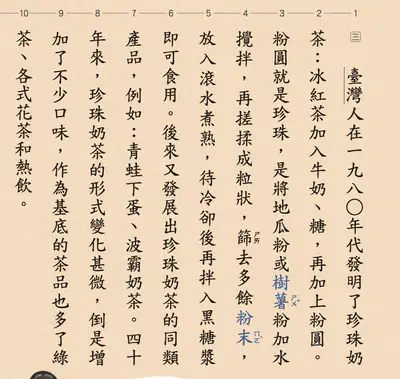 1
三 臺灣人在一九八〇年代發明了珍珠奶
2
茶：冰紅茶加入牛奶、糖，再加上粉圓。
3
粉圓就是珍珠，是將地瓜粉或樹薯粉加水
4
攪拌，再搓揉成粒狀，篩ㄕㄞ去多餘粉末ㄇㄛˋ，
5
放入滾水煮熟，待冷卻後再拌入黑糖漿
6
即可食用。後來又發展出珍珠奶茶的同類
7
產品，例如：青蛙下蛋、波霸奶茶。四十
8
年來，珍珠奶茶的形式變化甚微，倒是增
9
加了不少口味，作為基底的茶品也多了綠
10
茶、各式花茶和熱飲。